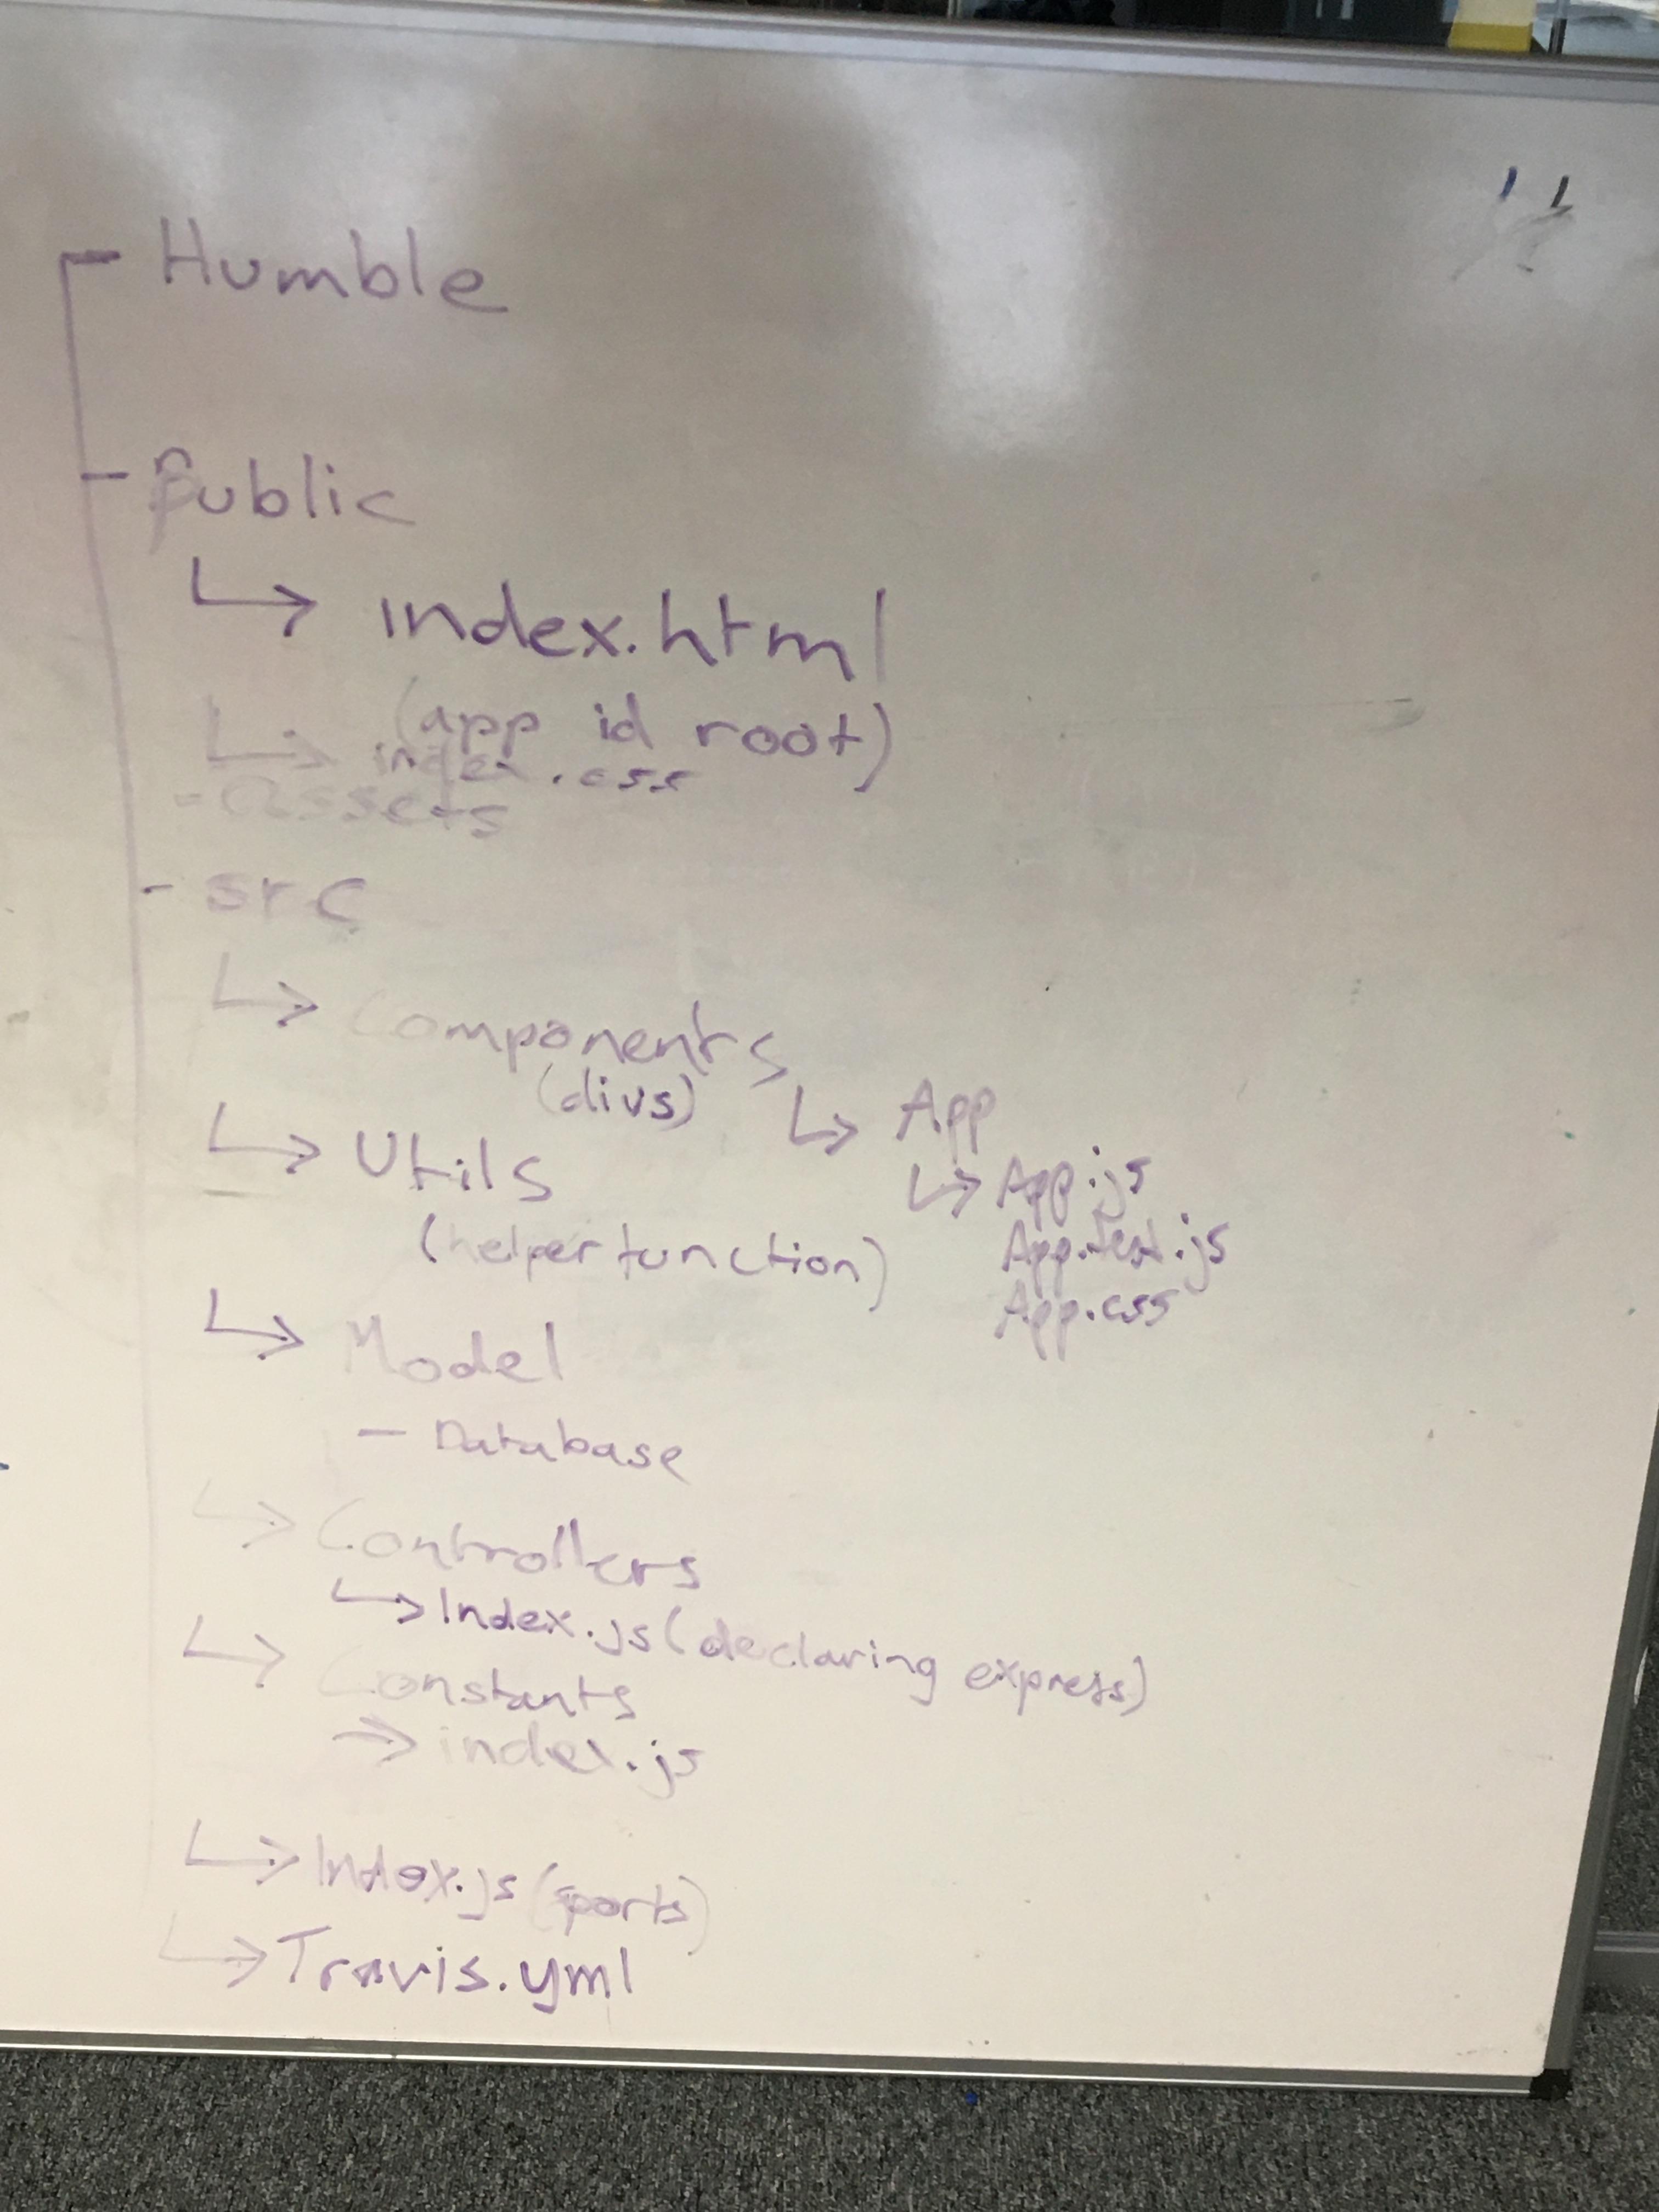 - Humble
- Public
↳ index.html
(app id root)
↳ index.css
- Assets
- src
↳ Components
(divs)
↳ App
↳ App.js
App.test.js
App.css
↳ Utils
(helper function)
↳ Model
- Database
↳ Controllers
↳ Index.js (declaring express)
↳ Constants
→ index.js
↳ Index.js (ports)
↳ Travis.yml